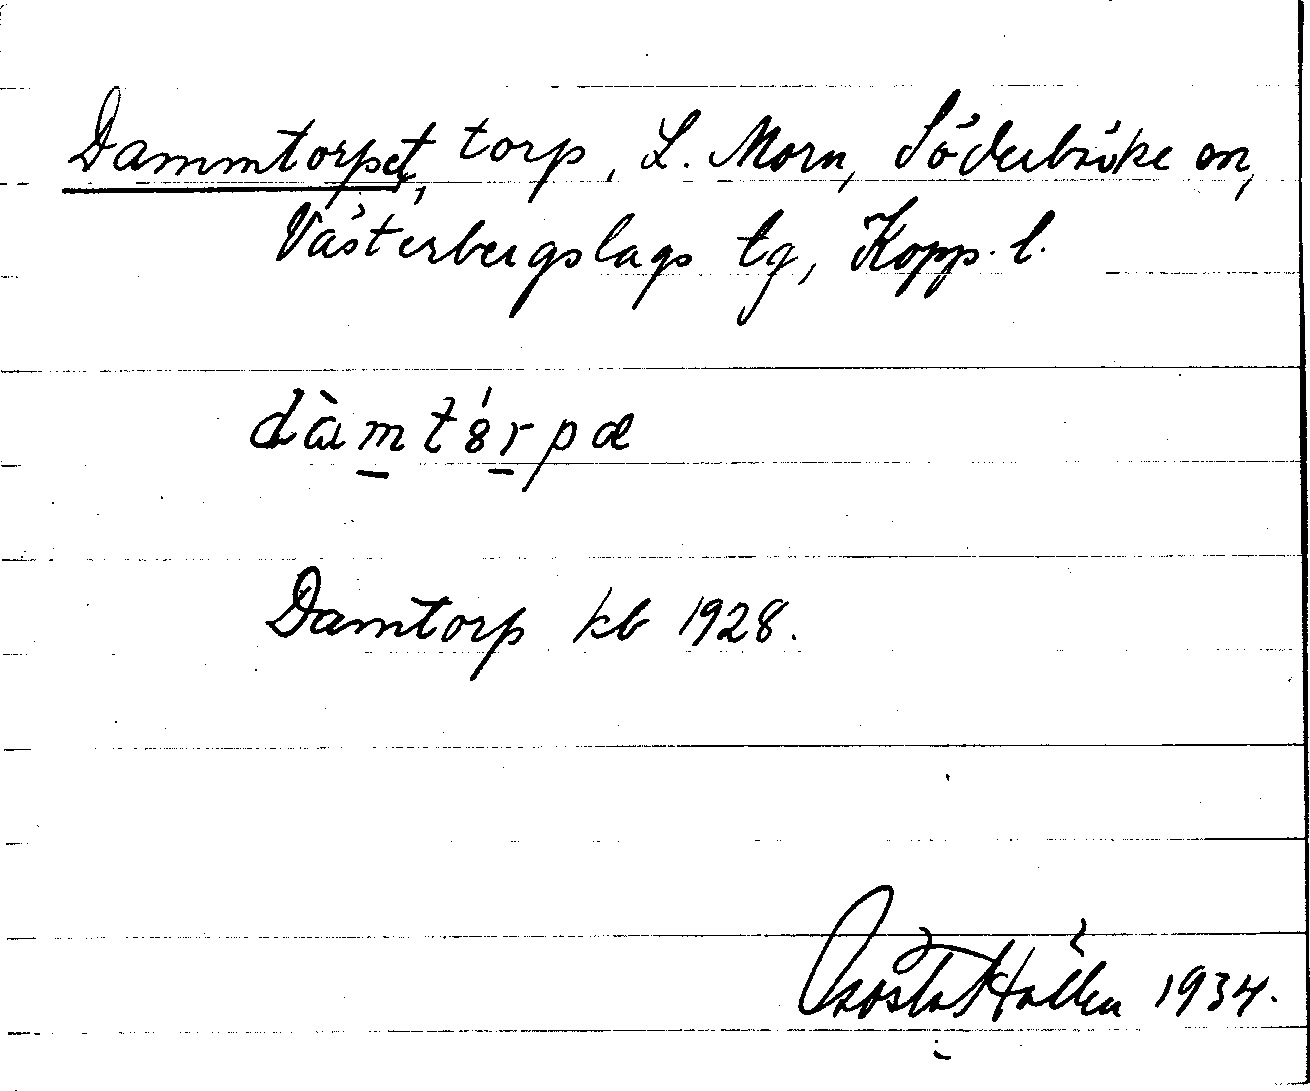 Dammtorpet, torp, L. Morn, Söderbärke sn,
Västerbergslags tg, Kopp. l.
dàmtórpæ
Damtorp kb 1928.
Gösta Hallen 1934.